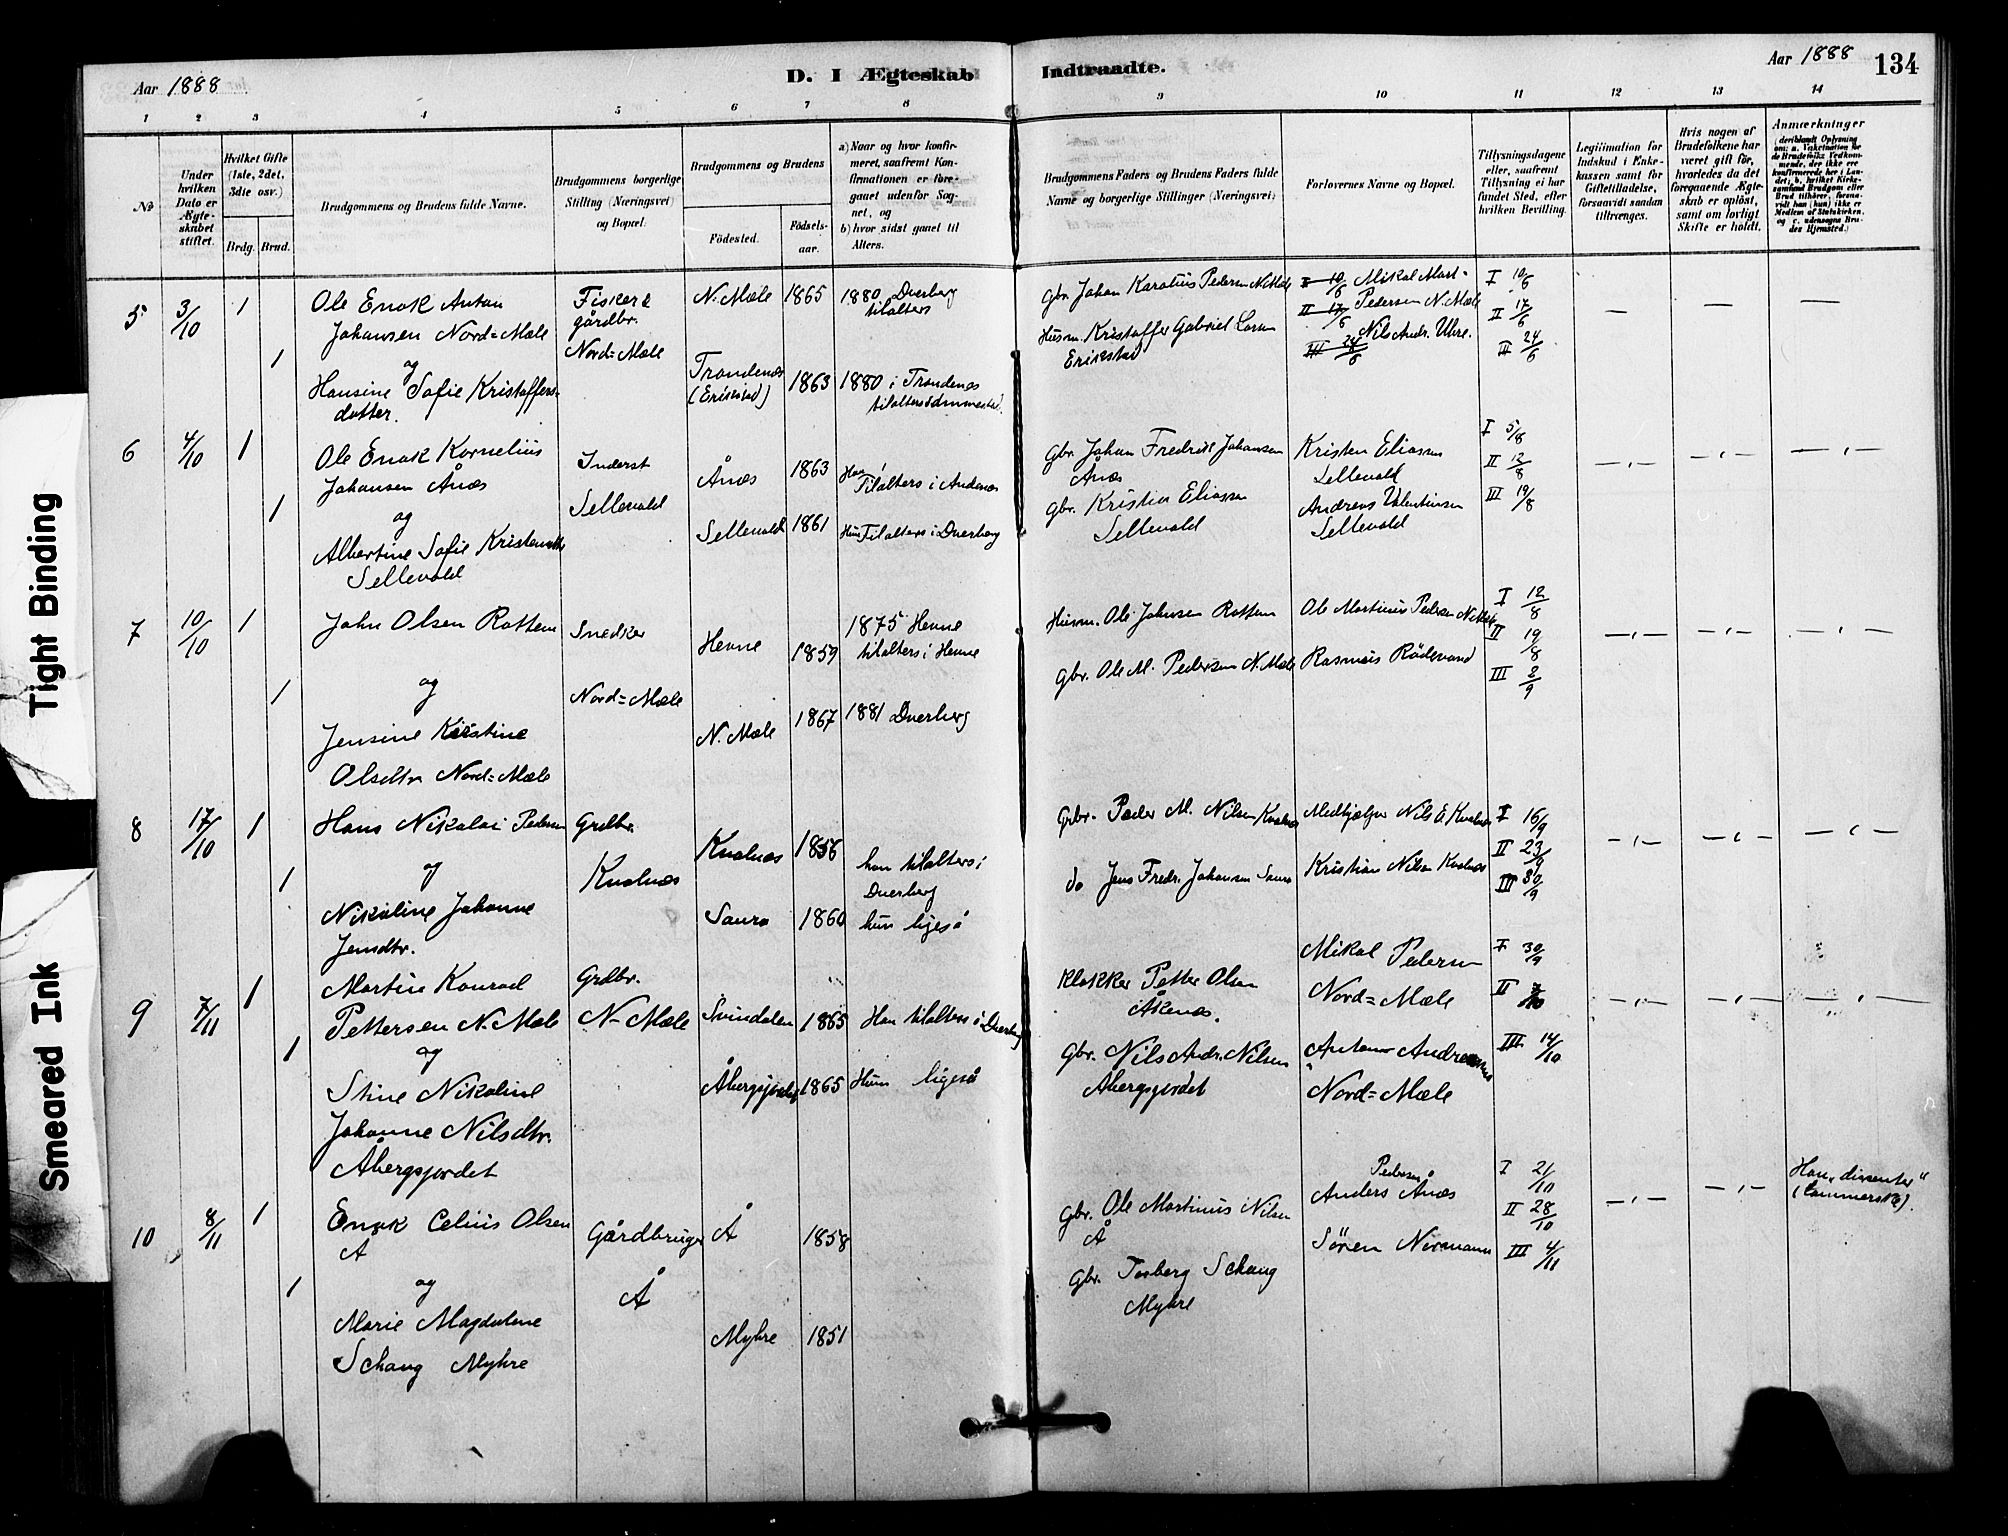 Aar 1888
D. I Ægteskab Indtraadte.
Aar 1888 134
1 2 3 4 5 6 7 8 9 10 11 12 13 14
No
Under hvilken Dato er Ægteskabet stiftet.
Hvilket Gifte (1ste, 2det, 3die osv.)
Brdg. Brud.
Brudgommens og Brudens fulde Navne.
Brudgommens borgerlige Stilling (Næringsvei) og Bopæl.
Brudgommens og Brudens
Fødested.
Fødselsaar.
a) Naar og hvor konfirmeret, saafremt Konfirmationen er foregaaet udenfor Sognet, og
b) hvor sidst gaaet til Alters.
Brudgommens Faders og Brudens Faders fulde Navne og borgerlige Stillinger (Næringsvei)
Forlovernes Navne og Bopæl.
Tillysningsdagene eller, saafremt Tillysning ei har fundet Sted, efter hvilken Bevilling.
Legitimation for Indskud i Enkekassen samt for Giftetilladelse, forsaavidt saadan tiltrænges.
Hvis nogen af Brudefolkene har været gift før, hvorledes da det foregaaende Ægteskab er opløst, samt om lovligt Skifte er holdt.
Anmærkninger
5 3/10 1
Ole Enok Antan
Johansen Nord=Mæle
og
1 Hansine Sofie Kristoffers-
datter.
Fisker &
gårdbr.
Nord=Mæle
N. Mæle 1865 1880 Dverberg
tilalters
Trondenæs
(Erikstad) 1863 1880 i Trondenæs
Gbr. Johan Karolius Pedersen N. Mæle
Husm. Kristoffer Gabriel Larsen
Erikstad
I 10/6 Mikal Mart.
II 17/6 Pedersen N. Mæle
III 24/6 Nils Andr. Uhre.
I 10/6
II 17/6
III 24/6
— — —
6 4/10 1
Ole Enok Kornelius
Johansen Ånæs
og
1 Albertine Sofie Kristensdtr
Sellevold
Inderst
Sellevold
Ånæs 1863 Han Tilalters i Andenæs
Sellevold 1861 Hun Tilalters i Dverberg
Gbr. Johan Fredrik Johansen
Ånæs
Gbr. Kristen Eliassen
Sellevold
Kristen Eliassen
Sellevold
Andreas Valentinsen
Sellevold
I 5/8
II 12/8
III 19/8
—„— —„— —„—
7 10/10 1
John Olsen Rottem
og
1 Jensine Kristine
Olsdtr Nord=Mæle
Snedker
Nord=Mæle
Hevne 1859 1875 Hevne
tilalters i Hevne
N. Mæle 1867 1881 Dverberg
Husm. Ole Johnsen Rottem
Gbr. Ole M. Pedersen N. Mæle
Ole Martinus Pedersen N. Mæle
Rasmus Rödevand
I 12/8
II 19/8
III 2/9
—„— —„— —„—
8 17/10 1
Hans Nikolai Pedersen
og
1 Nikoline Johanne
Jensdtr.
Grdbr.
Kvalnæs
Kvalnæs 1856 han tilalters i
Dverberg
Saura 1860 hun ligeså
Grbr. Peder M. Nilsen Kvalnæs
do Jens Fredr. Johansen Saura
Medhjælper Nils E Kvalnæs
Kristian Nilsen Kvalnæs
I 16/9
II 23/9
III 30/9
—„— —„— —„—
9 7/11 1
Martin Konrad
Pettersen N. Mæle
og
1 Stine Nikoline
Johanne Nilsdtr.
Åbergsjordet
Grdbr.
N-Mæle
Svindalen 1865 Han tilalters i Dverberg
Åbergsjordet 1865 Hun ligeså
Klokker Petter Olsen
Åkenæs.
Gbr. Nils Andr. Nilsen
Åbergsjordet
Mikal Pedersen
Nord=Mæle
Anton Andreassen
Nord=Mæle
I 30/9
II 7/10
III 14/10
—„— —„— —„—
10 8/11 1
Enok Celius Olsen
Å
og
1 Marie Magdalene
Schang Myhre
Gårdbruger
Å
Å 1858
Myhre 1851
Gbr. Ole Martinus Nilsen
Å
Gbr. Torberg Schang
Myhre
Pedersen
Anders Ånæs
Sören Normann
I 21/10
II 28/10
III 4/11
—„— —„—
Han „dissenter"
(Lammersk).
Tight Binding
Smeared Ink